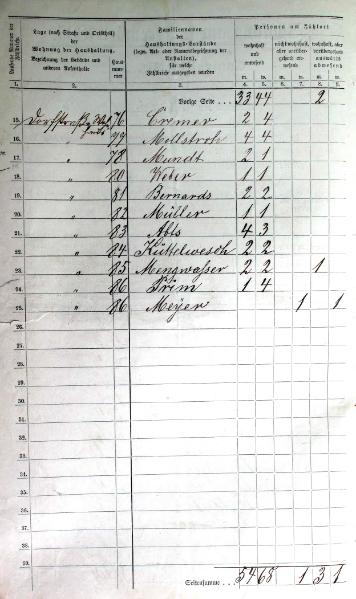 Laufende Nummer der Zählbriefe.
Lage (nach Straße und Ortsteil) der Wohnung der Haushaltung, Bezeichnung der Gebäude und anderen Aufenthalte
Haus- nummer
Familiennamen der Haushaltungs-Vorstände (bezw. Art- oder Namenbezeichnung der Anstalten), für welche Zählbriefe ausgegeben wurden
Personen am Zählort
wohnhaft und anwesend
m. w. m. w. m. w.
1. 2. 3. 4. 5. 6. 7. 8. 9.
Vorige Seite 33 44 2
15. Dorfstraße 76 Cremer 2 4
16. " 77 Mellstroh 4 4
17. " 78 Mundt 2 1
18. " 80 Weber 1 1
19. " 81 Bernards 2 2
20. " 82 Müller 1 1
21. " 83 Abls 4 3
22. " 84 Küttelwesch 2 2
23. " 85 Mengwasser 2 2 1
24. " 86 Prim 1 4
25. " 86 Meyer 1 1
26.
27.
28.
29.
30.
31.
32.
33.
34.
35.
36.
37.
38.
39.
Seitensumme 54 68 1 3 1